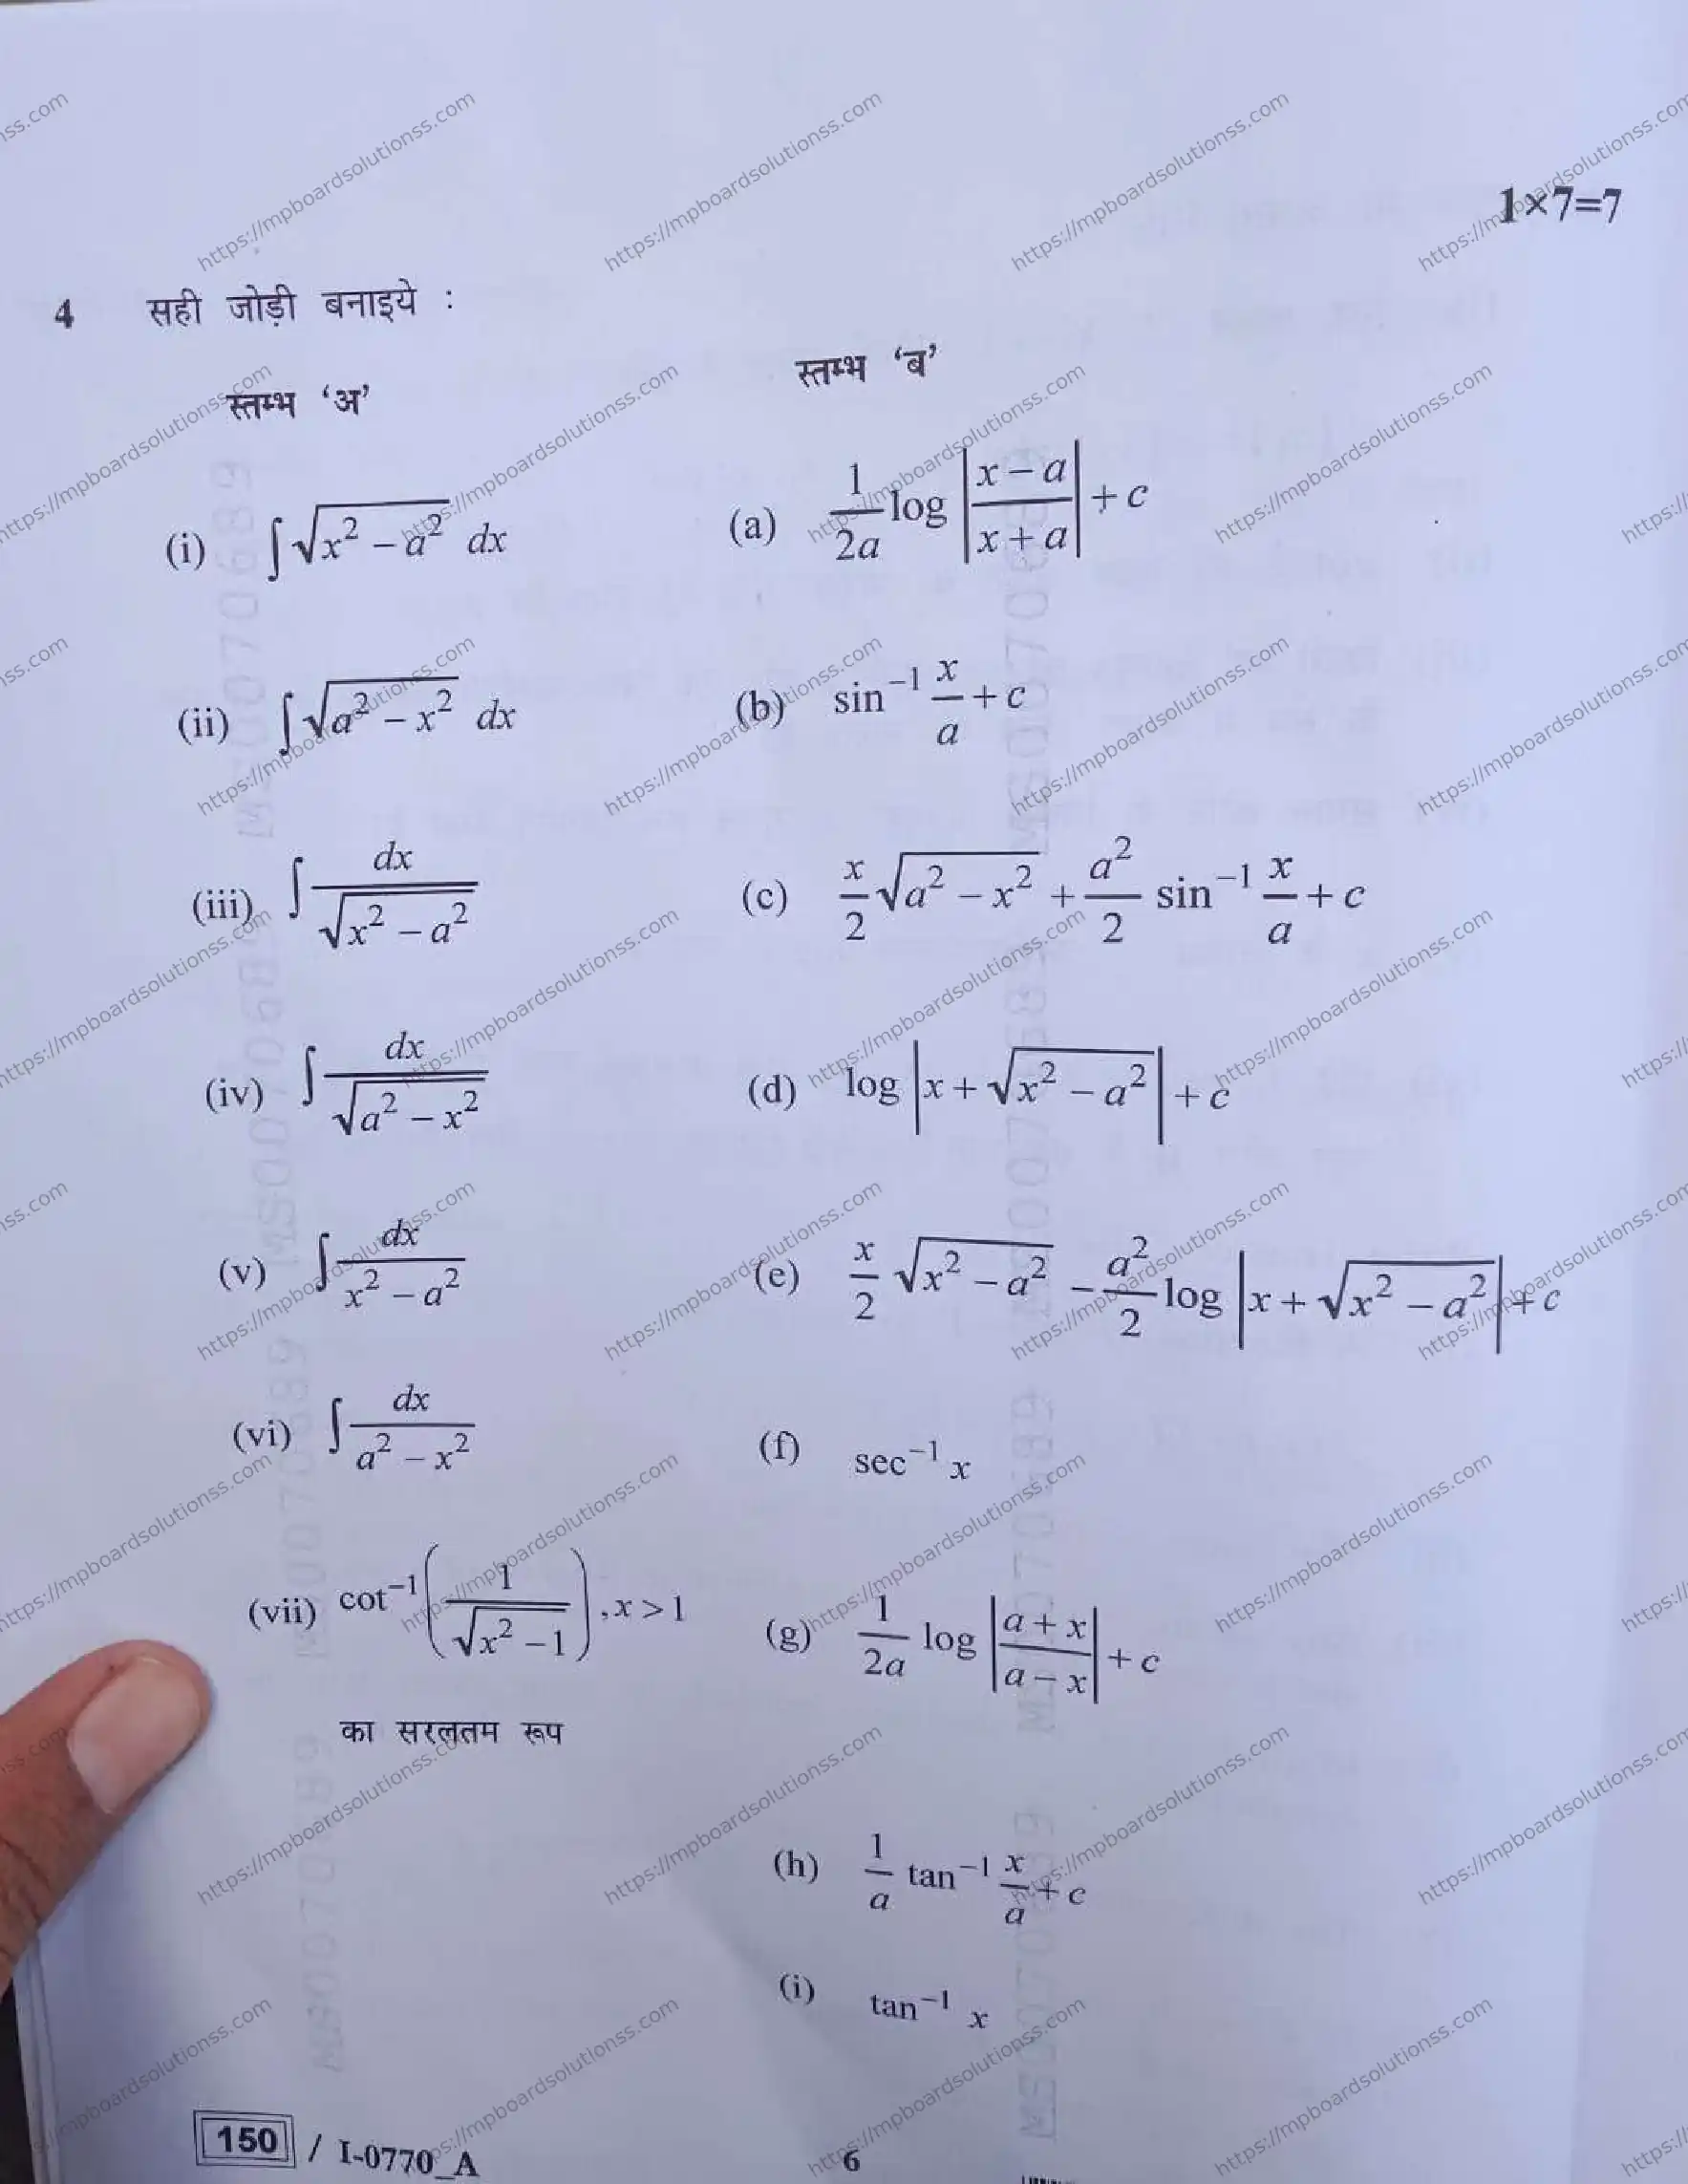 1×7=7
4 सही जोड़ी बनाइये :
स्तम्भ ‘अ’ स्तम्भ ‘ब’
(i) ∫√(x² − a²) dx (a) 1/2a log |(x − a)/(x + a)| + c
(ii) ∫√(a² − x²) dx (b) sin⁻¹ x/a + c
(iii) ∫ dx/√(x² − a²) (c) x/2 √(a² − x²) + a²/2 sin⁻¹ x/a + c
(iv) ∫ dx/√(a² − x²) (d) log |x + √(x² − a²)| + c
(v) ∫ dx/(x² − a²) (e) x/2 √(x² − a²) − a²/2 log |x + √(x² − a²)| + c
(vi) ∫ dx/(a² − x²) (f) sec⁻¹ x
(vii) cot⁻¹(1/√(x² − 1)), x > 1 (g) 1/2a log |(a + x)/(a − x)| + c
का सरलतम रूप
(h) 1/a tan⁻¹ x/a + c
(i) tan⁻¹ x
150 / I-0770_A 6
https://mpboardsolutionss.com